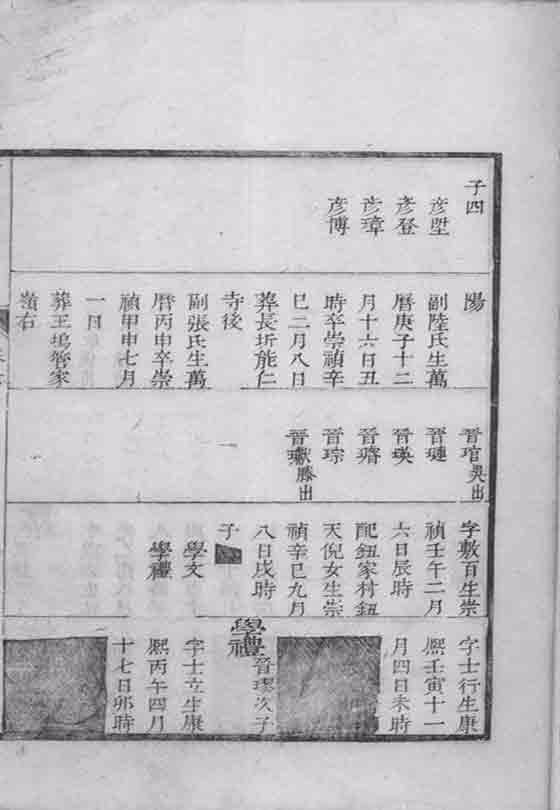 子四
彦塈
彦登
彦璋
彦博
陽
副陸氏生萬
曆庚子十二
月十六日丑
時卒崇禎辛
巳二月八日
葬長圻能仁
寺後
副張氏生萬
曆丙申卒崇
禎甲申七月
一日
葬王塢管家
嶺右
晉琯吳出
晉璉
晉瑛
晉㻮
晉琮
晉瓛滕出
字敷百生崇
禎壬午二月
六日辰時
配鈕家村鈕
天倪女生崇
禎辛巳九月
八日戌時
子
學文
學禮
字士行生康
熙壬寅十一
月四日未時
學禮
晉次子
字士立生康
熙丙午四月
十七日卯時